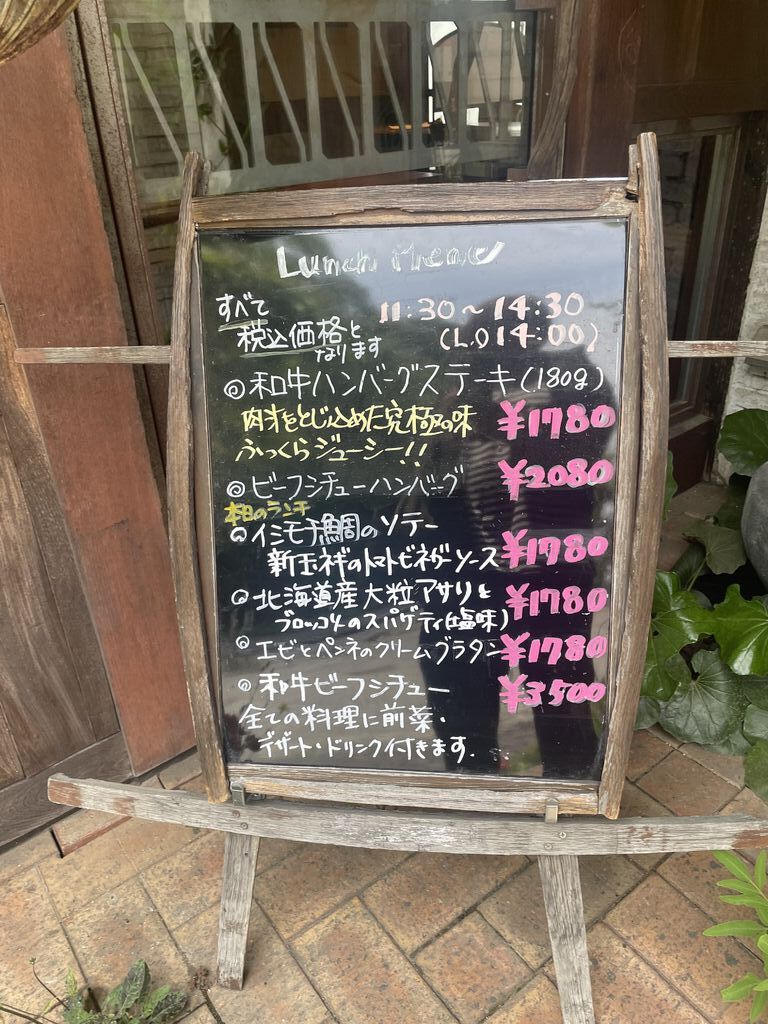 Lunch Menu
すべて
税込価格と
なります
11:30～14:30
(L.O 14:00)
◎和牛ハンバーグステーキ(180g)
肉汁をとじ込めた究極の味
¥1780
ふっくらジューシー!!
◎ビーフシチューハンバーグ
¥2080
本日のランチ
◎イシモチ鯛のソテー
新玉ネギのトマトビネガーソース
¥1780
◎北海道産大粒アサリと
ブロッコリのスパゲティ(塩味)
¥1780
◎エビとペンネのクリームグラタン
¥1780
◎和牛ビーフシチュー
¥3500
全ての料理に前菜・
デザート・ドリンク付きます.